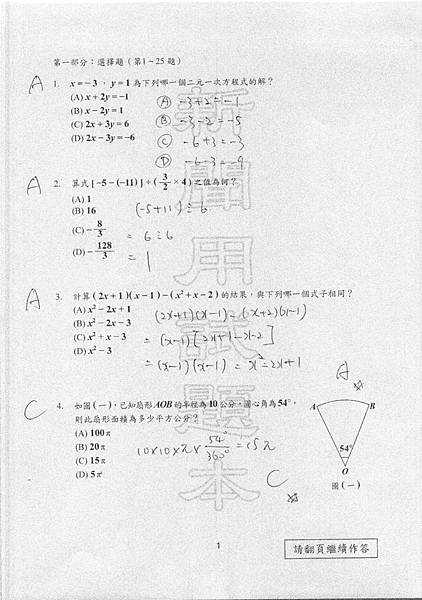 第一部分：選擇題（第1～25題）
A 1. x=－3，y=1為下列哪一個二元一次方程式的解？
(A) x+2y=－1 Ⓐ -3+2=-1
(B) x－2y=1 Ⓑ -3-2=-5
(C) 2x+3y=6 Ⓒ -6+3=-3
(D) 2x－3y=－6 Ⓓ -6-3=-9
A 2. 算式[－5－(－11)]÷(3/2×4)之值為何？
(A) 1
(B) 16 (-5+11)÷6
(C) －8/3 = 6÷6
(D) －128/3 = 1
A 3. 計算(2x+1)(x－1)－(x²+x－2)的結果，與下列哪一個式子相同？
(A) x²－2x+1
(B) x²－2x－3 (2x+1)(x-1)-(x+2)(x-1)
(C) x²+x－3 =(x-1)[2x+1-x-2]
(D) x²－3 =(x-1)(x-1)=x²-2x+1
A☆
C 4. 如圖(一)，已知扇形AOB的半徑為10公分，圓心角為54°，
則此扇形面積為多少平方公分？
(A) 100π
(B) 20π 10×10×π×54°/360°=15π
(C) 15π
(D) 5π
C☆
A B
54°
O
圖(一)
新聞用試題本
1
請翻頁繼續作答